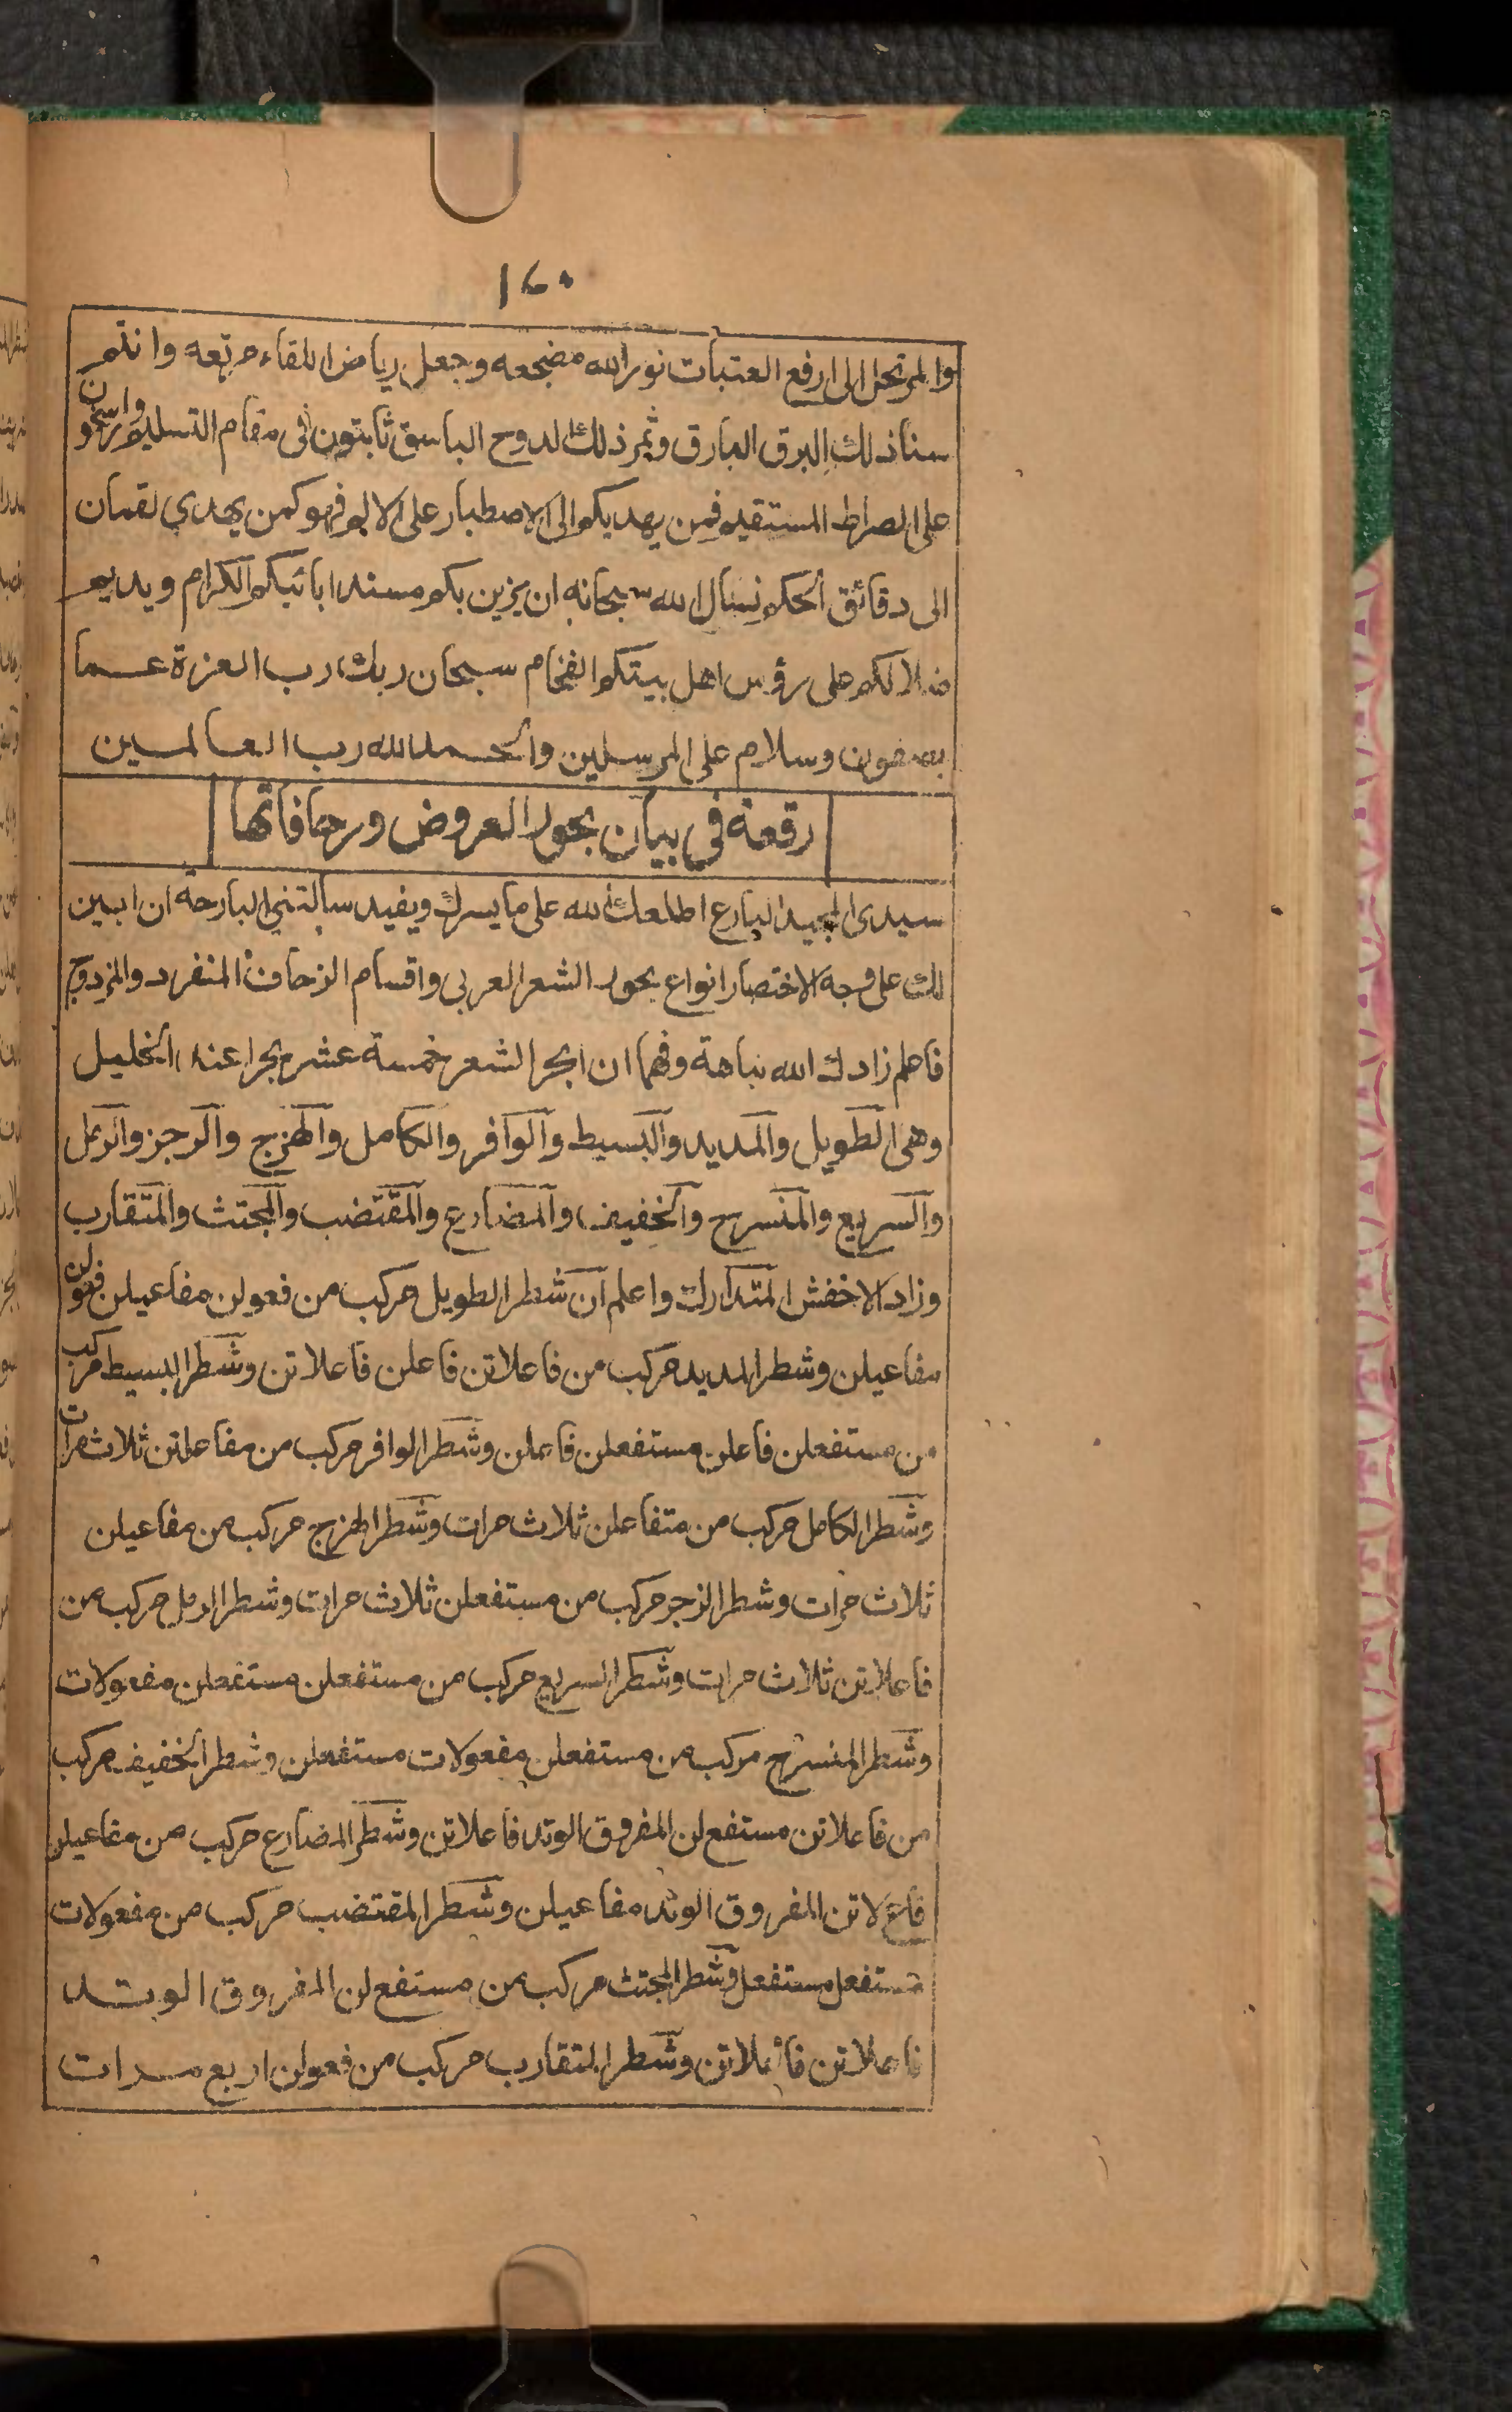 ١٤٠
والمرتحل الى ارفع العتبات نور الله مضجعه وجعل رياض اللقاء مرتعه وانتم
سنا ذلك البرق البارق وثمر ذلك الدوح الباسق ثابتون فى مقام التسليم وراسخون
على الصراط المستقيم فمن يهديكم الى الاصطبار على الالم فهو كمن يهدي لقمان
الى دقائق الحكم نسأل الله سبحانه ان يزين بكم مسند ابائيكم الكرام ويديم
ضلالكم على رؤس اهل بيتكم الفخام سبحان ربك رب العزة عما
يصفون وسلام على المرسلين والحمد لله رب العالمين
رقعة في بيان بحور العروض وزحافاتها
سيدى المجيد البارع اطلعك الله على ما يسرك ويفيد سألتني البارحة ان ابين
لك على وجه الاختصار انواع بحور الشعر العربى واقسام الزحاف المنفرد والمزدوج
فاعلم زادك الله نباهة وفهما ان ابحر الشعر خمسة عشر بحرا عند الخليل
وهى الطويل والمديد والبسيط والوافر والكامل والهزج والرجز والرمل
والسريع والمنسرح والخفيف والمضارع والمقتضب والمجتث والمتقارب
وزاد الاخفش المتدارك واعلم ان شطر الطويل مركب من فعولن مفاعيلن فعولن
مفاعيلن وشطر المديد مركب من فاعلاتن فاعلن فاعلاتن وشطر البسيط مركب
من مستفعلن فاعلن مستفعلن فاعلن وشطر الوافر مركب من مفاعلتن ثلاث مرات
وشطر الكامل مركب من متفاعلن ثلاث مرات وشطر الهزج مركب من مفاعيلن
ثلاث مرات وشطر الزجر مركب من مستفعلن ثلاث مرات وشطر الرمل مركب من
فاعلاتن ثلاث مرات وشطر السريع مركب من مستفعلن مستفعلن مفعولات
وشطر المنسرح مركب من مستفعلن مفعولات مستفعلن وشطر الخفيف مركب
من فاعلاتن مستفع لن المفروق الوتد فاعلاتن وشطر المضارع مركب من مفاعيلن
فاع لاتن المفروق الوتد مفاعيلن وشطر المقتضب مركب من مفعولات
مستفعل مستفعل وشطر المجتث مركب من مستفع لن المفروق الوتد
فاعلاتن فاعلاتن وشطر المتقارب مركب من فعولن اربع مرات